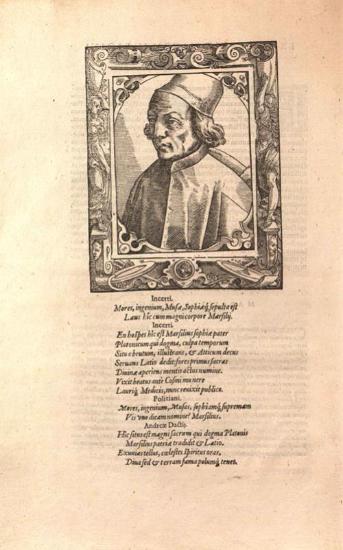 Incerti.
Mores, ingenium, Musæ, Sophiæq́; sepulta est
Laus hîc cum magni corpore Marsilij.
Incerti.
En hospes hîc est Marsilius sophiæ pater
Platonicum qui dogma, culpa temporum
Situ obrutum, illustrans, & Atticum decus
Seruans Latio dedit: fores primus sacras
Diuinæ aperiens mentis actus numine.
Vixit beatus ante Cosmi munere
Lauriq́; Medicis, nunc reuixit publico.
Politiani.
Mores, ingenium, Musas, sophiamq́; supremam
Vis uno dicam nomine? Marsilius.
Andreæ Dactij.
Hîc situs est magni sacrum qui dogma Platonis
Marsilius patriæ tradidit & Latio.
Exuuias tellus, cœlestes spiritus oras,
Diua sed & terram fama polumq́; tenet.